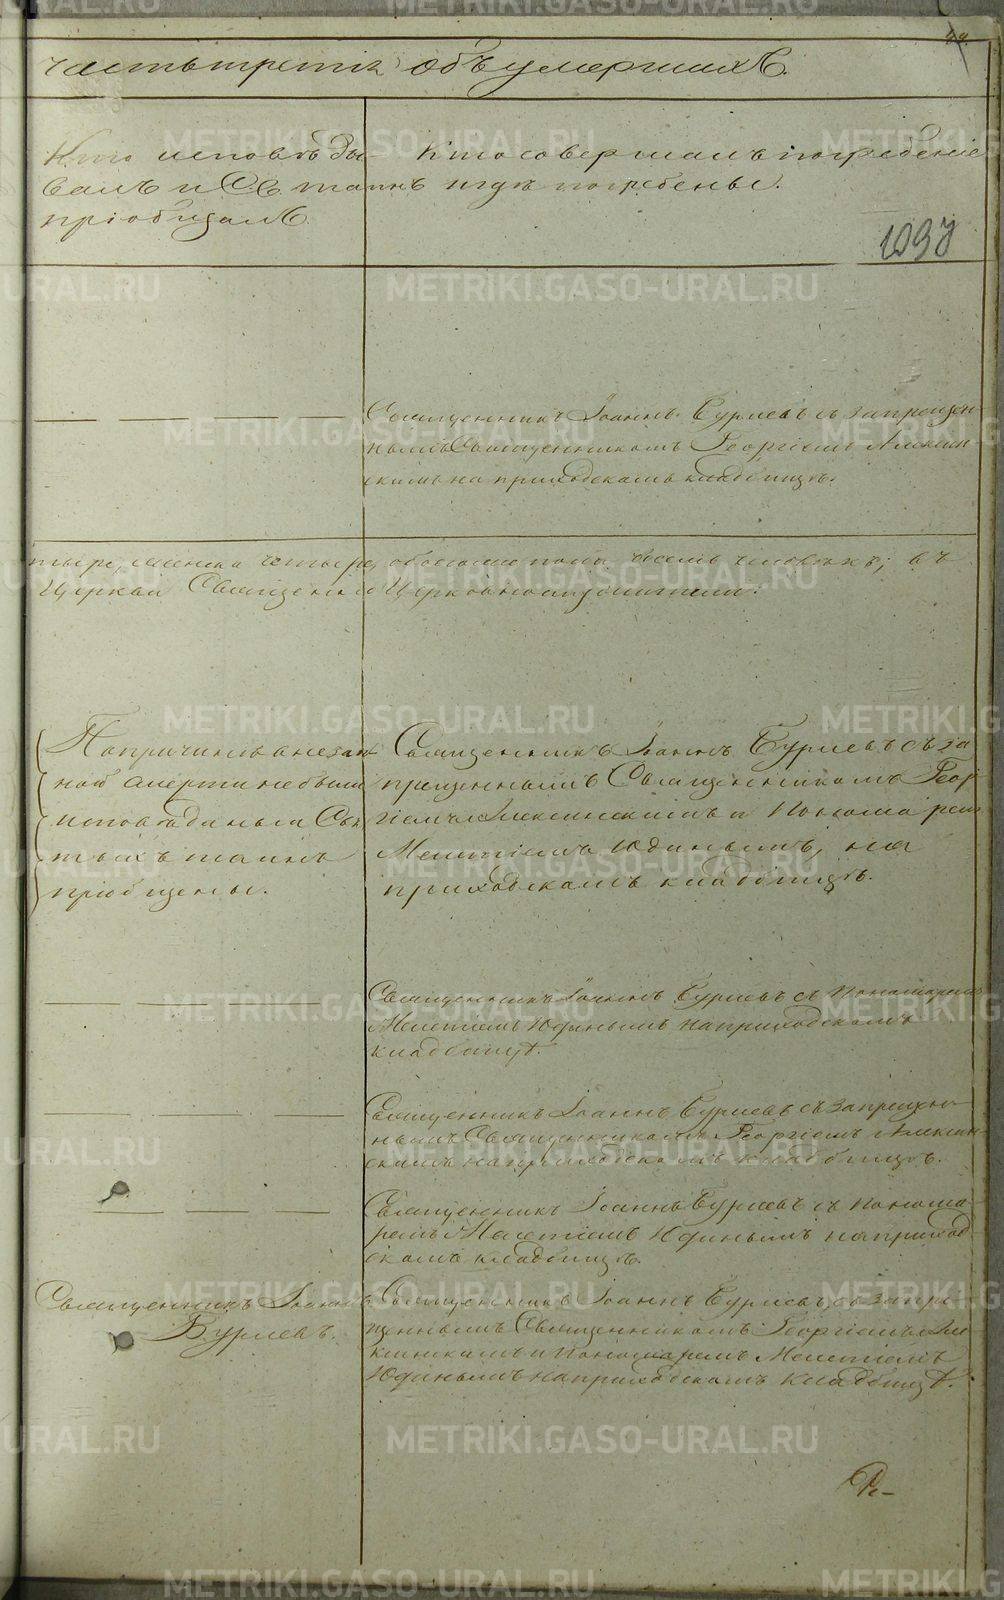 часть третія объ умершихъ.
Кто исповѣды-
валъ и Св. таинъ
пріобщалъ
Кто совершалъ погребеніе
и гдѣ погребены.
1097
Священникъ Іоаннъ Бурлевъ съ запрещен-
нымъ Священникомъ Георгіемъ
скимъ на приходскомъ кладбищѣ.
тыре, женска четыре, обоего пола восемь человѣкъ; въ
Церкви Священно Церковнослужители:
По причинѣ внезап-
ной смерти не были
исповѣданы и Свя-
тыхъ таинъ
пріобщены.
Священникъ Іоаннъ Бурлевъ съ за-
прещеннымъ Священникомъ Геор-
гіемъ и Пономарем
Мелетіемъ Юдинымъ, на
приходскомъ кладбищѣ.
Священникъ Іоаннъ Бурлевъ съ Пономаремъ
Мелетіемъ Юдинымъ на приходскомъ
кладбищѣ.
Священникъ Іоаннъ Бурлевъ съ запрещен-
нымъ Священникомъ Георгіемъ
скимъ на приходскомъ кладбищѣ.
Священникъ Іоаннъ Бурлевъ съ Понома-
ремъ Мелетіемъ Юдинымъ на приход-
скомъ кладбищѣ.
Священникъ Іоаннъ
Бурлевъ.
Священникъ Іоаннъ Бурлевъ, съ запре-
щеннымъ Священникомъ Георгіемъ
и Пономаремъ Мелетіемъ
Юдинымъ на приходскомъ кладбищѣ.
METRIKI.GASO-URAL.RU